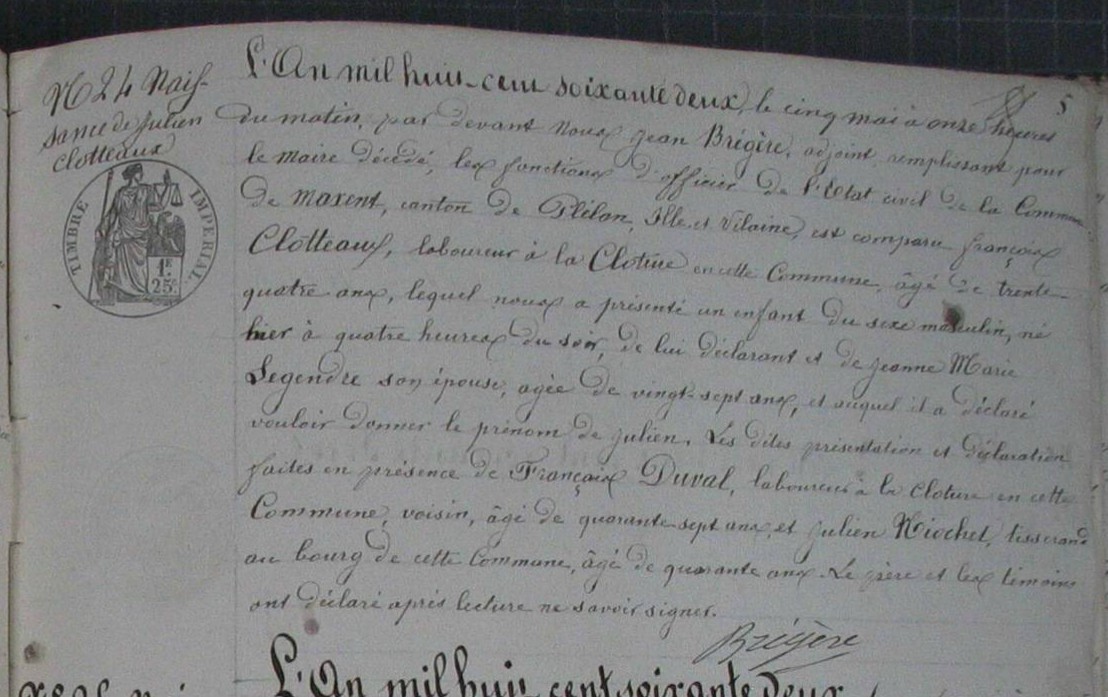 N° 24 Nais-
sance de Julien
Clotteaux
TIMBRE IMPERIAL
1F.
25c
5
L'An mil huit-cent soixante deux, le cinq mai à onze heures
du matin, par devant nous Jean Brégère, adjoint remplissant pour
le maire décédé, les fonctions d'officier de l'Etat civil de la Commune
de Maxent, canton de Plélan, Ille et Vilaine, est comparu françois
Clotteaux, laboureur à la Cloture en cette Commune, âgé de trente-
quatre ans, lequel nous a présenté un enfant du sexe masculin, né
hier à quatre heures du soir, de lui déclarant et de Jeanne Marie
Legendre son épouse, agée de vingt-sept ans, et auquel il a déclaré
vouloir donner le prénom de Julien. Les dites présentation et déclaration
faites en présence de François Duval, laboureur à la Cloture en cette
Commune, voisin, âgé de quarante-sept ans, et Julien Niochet, tisserand
au bourg de cette Commune, âgé de quarante ans. Le père et les témoins
ont déclaré après lecture ne savoir signer.
Brégère
L'An mil huit cent soixante deux